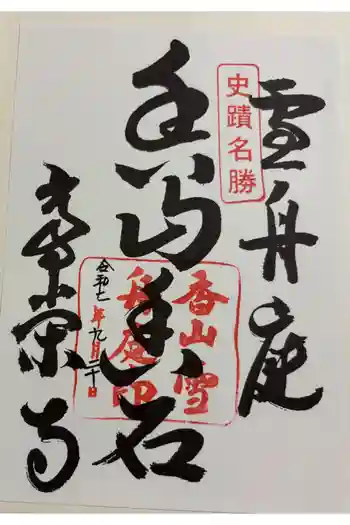 史蹟名勝
雪舟庭
香山雪
舟庭印
令和七年九月二十日
常榮寺